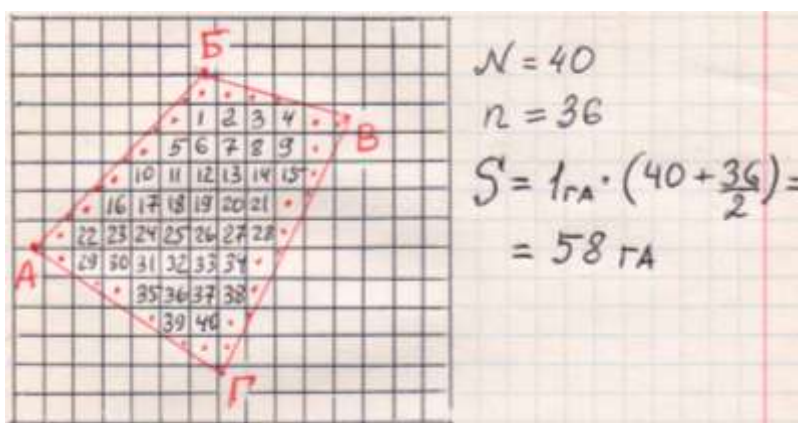 Б
1 2 3 4
В
5 6 7 8 9
10 11 12 13 14 15
16 17 18 19 20 21
22 23 24 25 26 27 28
А
29 30 31 32 33 34
35 36 37 38
39 40
Г
N = 40
n = 36
S = 1га · (40 + 36/2) =
= 58 га